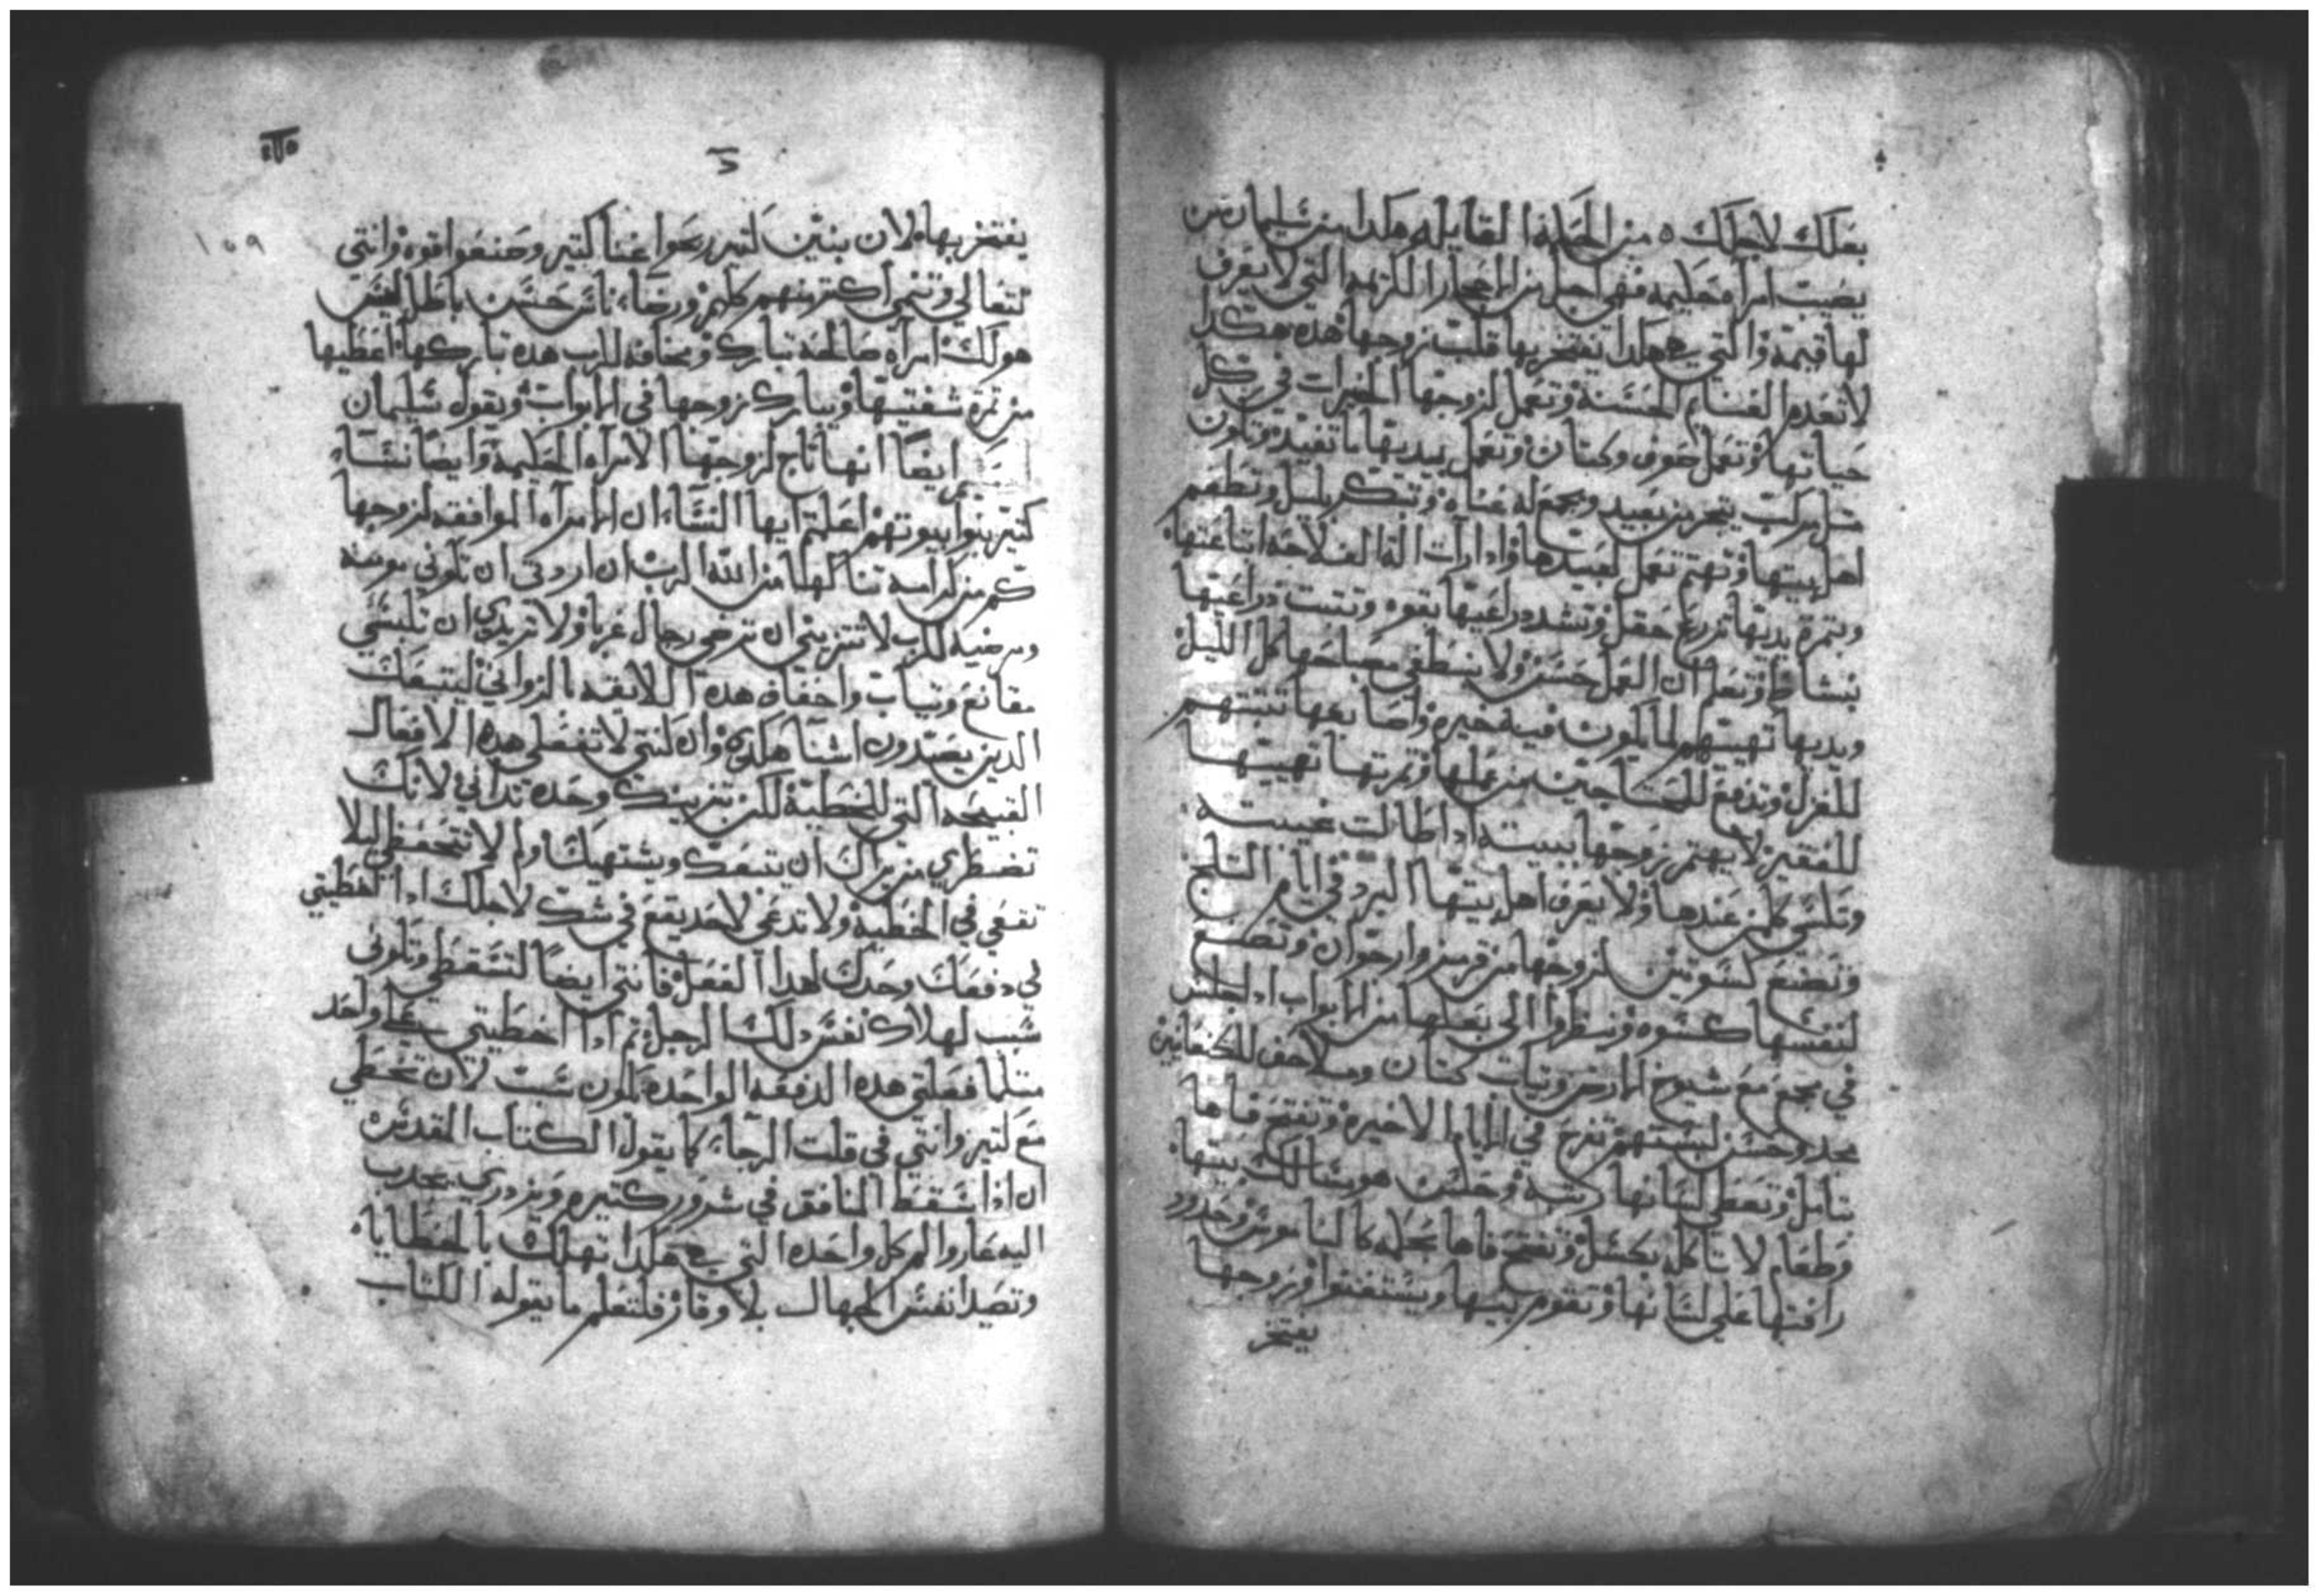 بعلك لاجلك ه من الحكمة القايله هكدا من سليمان من
يصيب امراه حكيمه فهي اجل من الاحجار الكريمه التي لا يعرف
لها قيمة والتي هي هكدا يفتخر بها قلب زوجها هده هكدا
لا تعدم الغنايم الحسنة وتعمل لزوجها الخيرات في كل
حياتها وتعمل صوف وكتان وتعمل بيديها ما تفيد وتكون
متل مركب يتجر من بعيد ويجمع له غناه وتبتكر بليل وتطعم
اهل بيتها وتهتم تعمل لعبيدها وادا رات الة الفلاحه ابتاعتها
وبتمرة يديها تزرع حقل وتشدد دراعيها بقوه وتتبت دراعيها
بنشاط وتعلم ان العمل حسن ولا ينطفي مصباحها كل الليل
ويديها تهيتهم لما يكون فيه خيره واصابعها تتبتهم
للغزل وتدفع للمحتاجين من عملها وتمرتها تهيتها
للفقير لا يهتم زوجها ببيته ادا طالت غيبته
وتكسي كلمن عندها ولا يعرف اهل بيتها البرد في ايام التلج
وتصنع كسوتين لزوجها من قرمز وارجوان وتصنع
لنفسها كسوه وينظروا الي بعلها من الابواب ادا جلس
في مجمع مع شيوخ الارض وتياب كتان وملاحف للكنعانيين
مجد وحسن لبستهم تفرح في الايام الاخيره وتفتح فاها
بتامل وتعطي لسانها رتبه وحسن هو سالك بيتها
وطعام لا تاكله بكسل وتفتح فاها بحكمه كالناموس وحدود
رافتها علي لسانها وتقوم بنيها ويستغنوا وزوجها
يفتخر
يفتخر بها لان بنين كتير ربحوا غنا كتير وصنعوا قوه وانتي
تتعالي وتنمي اكتر منهم كلهم ورضاء ناس حسن باطل ليس
هو لك امراه صالحة تبارك ومخافة للرب هده تباركها اعطيها
من تمرة شفتيها ويبارك زوجها في الابواب ويقول سليمان
ايضا انها تاج لزوجها الامراه الحكيمة وايضا نساء
كتير بنوا بيوتهم اعلمتم ايها النساء ان الامراه الموافقه لزوجها
كم من كرامه تنالها من الله الرب ان اردتي ان تكوني مومنه
ومرضيه للرب لا تتزيني ان ترضي رجال غربا ولا تريدي ان تلبسي
مقانع وتياب واخفاف هده اللايقه بالزواني ليتبعك
الدين يصيدون اشيا هكدي وان كنتي لا تفعلي هده الافعال
القبيحه التي للخطية لكن تتزينك وحده تداني لانك
تضطري من يراك ان يتبعك ويشتهيك لم لا تتحفظي ليلا
تقعي في الخطية ولا تدعي لاحد يقع في شك لاجلك ادا اخطيتي
لي دفعك وحدك لهدا الفعل فانتي ايضا لتسقطي وتكوني
سبب لهلاك نفس دلك الرجل تم ادا اخطيتي علي واحد
متلما فعلتي هده الدفعه الواحده تكون سبب لان تخطي
مع كتير وانتي في قلت الرجاء كما يقول الكتاب المقدس
ان ادا سقط المنافق في شرور كتيره ويزدري يجدب
اليه عار والم كل واحده التي هي هكدا تهلك بالخطايا
وتصيد انفس الجهال بلا وقار فلتعلم ما يقوله الكتاب
١٥٩